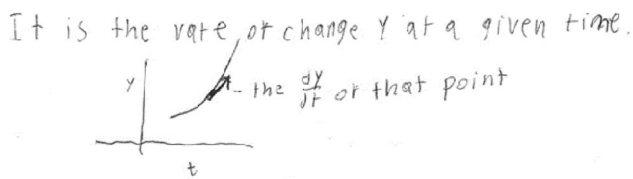 It is the rate of change y at a given time.
y
the dy/dt of that point
t